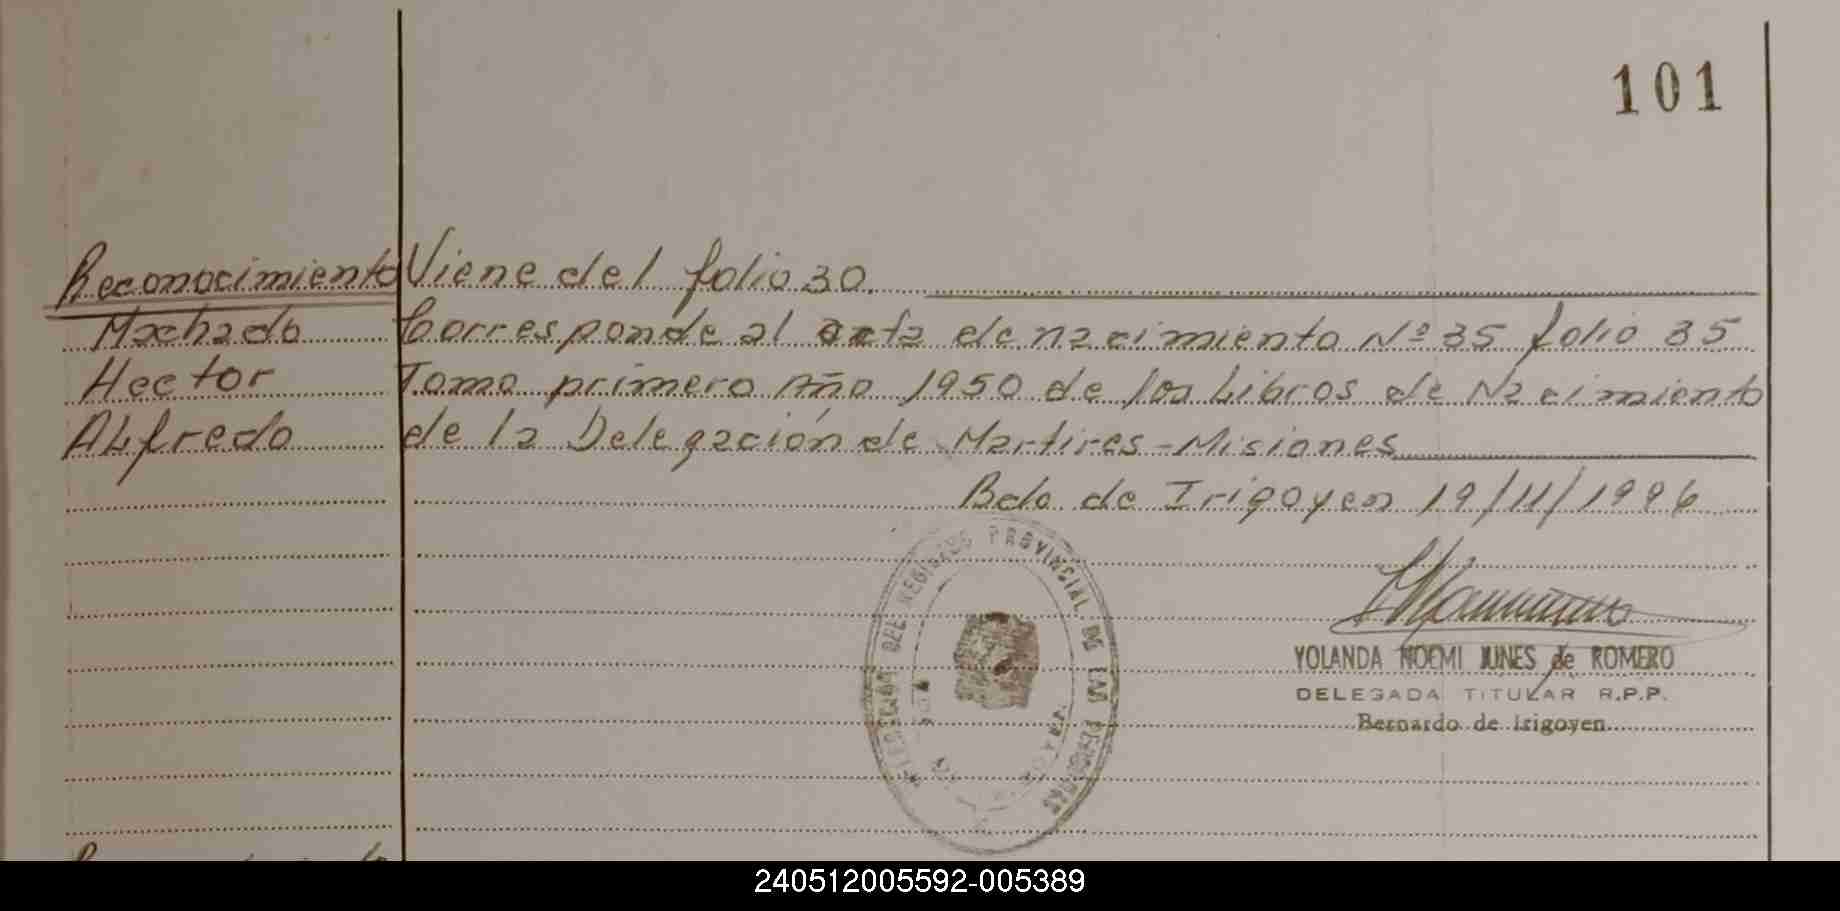 101
Reconocimiento Viene del folio 30.
Machado Corresponde al acta de nacimiento Nº 35 folio 35
Hector Tomo primero Año 1950 de los Libros de Nacimiento
ALfredo de la Delegación de Martires - Misiones
Bdo de Irigoyen 19/11/1996
PROVINCIAL DE LAS PERSONAS
YOLANDA NOEMI JUNES de ROMERO
DELEGADA TITULAR R.P.P.
Bernardo de Irigoyen
240512005592-005389